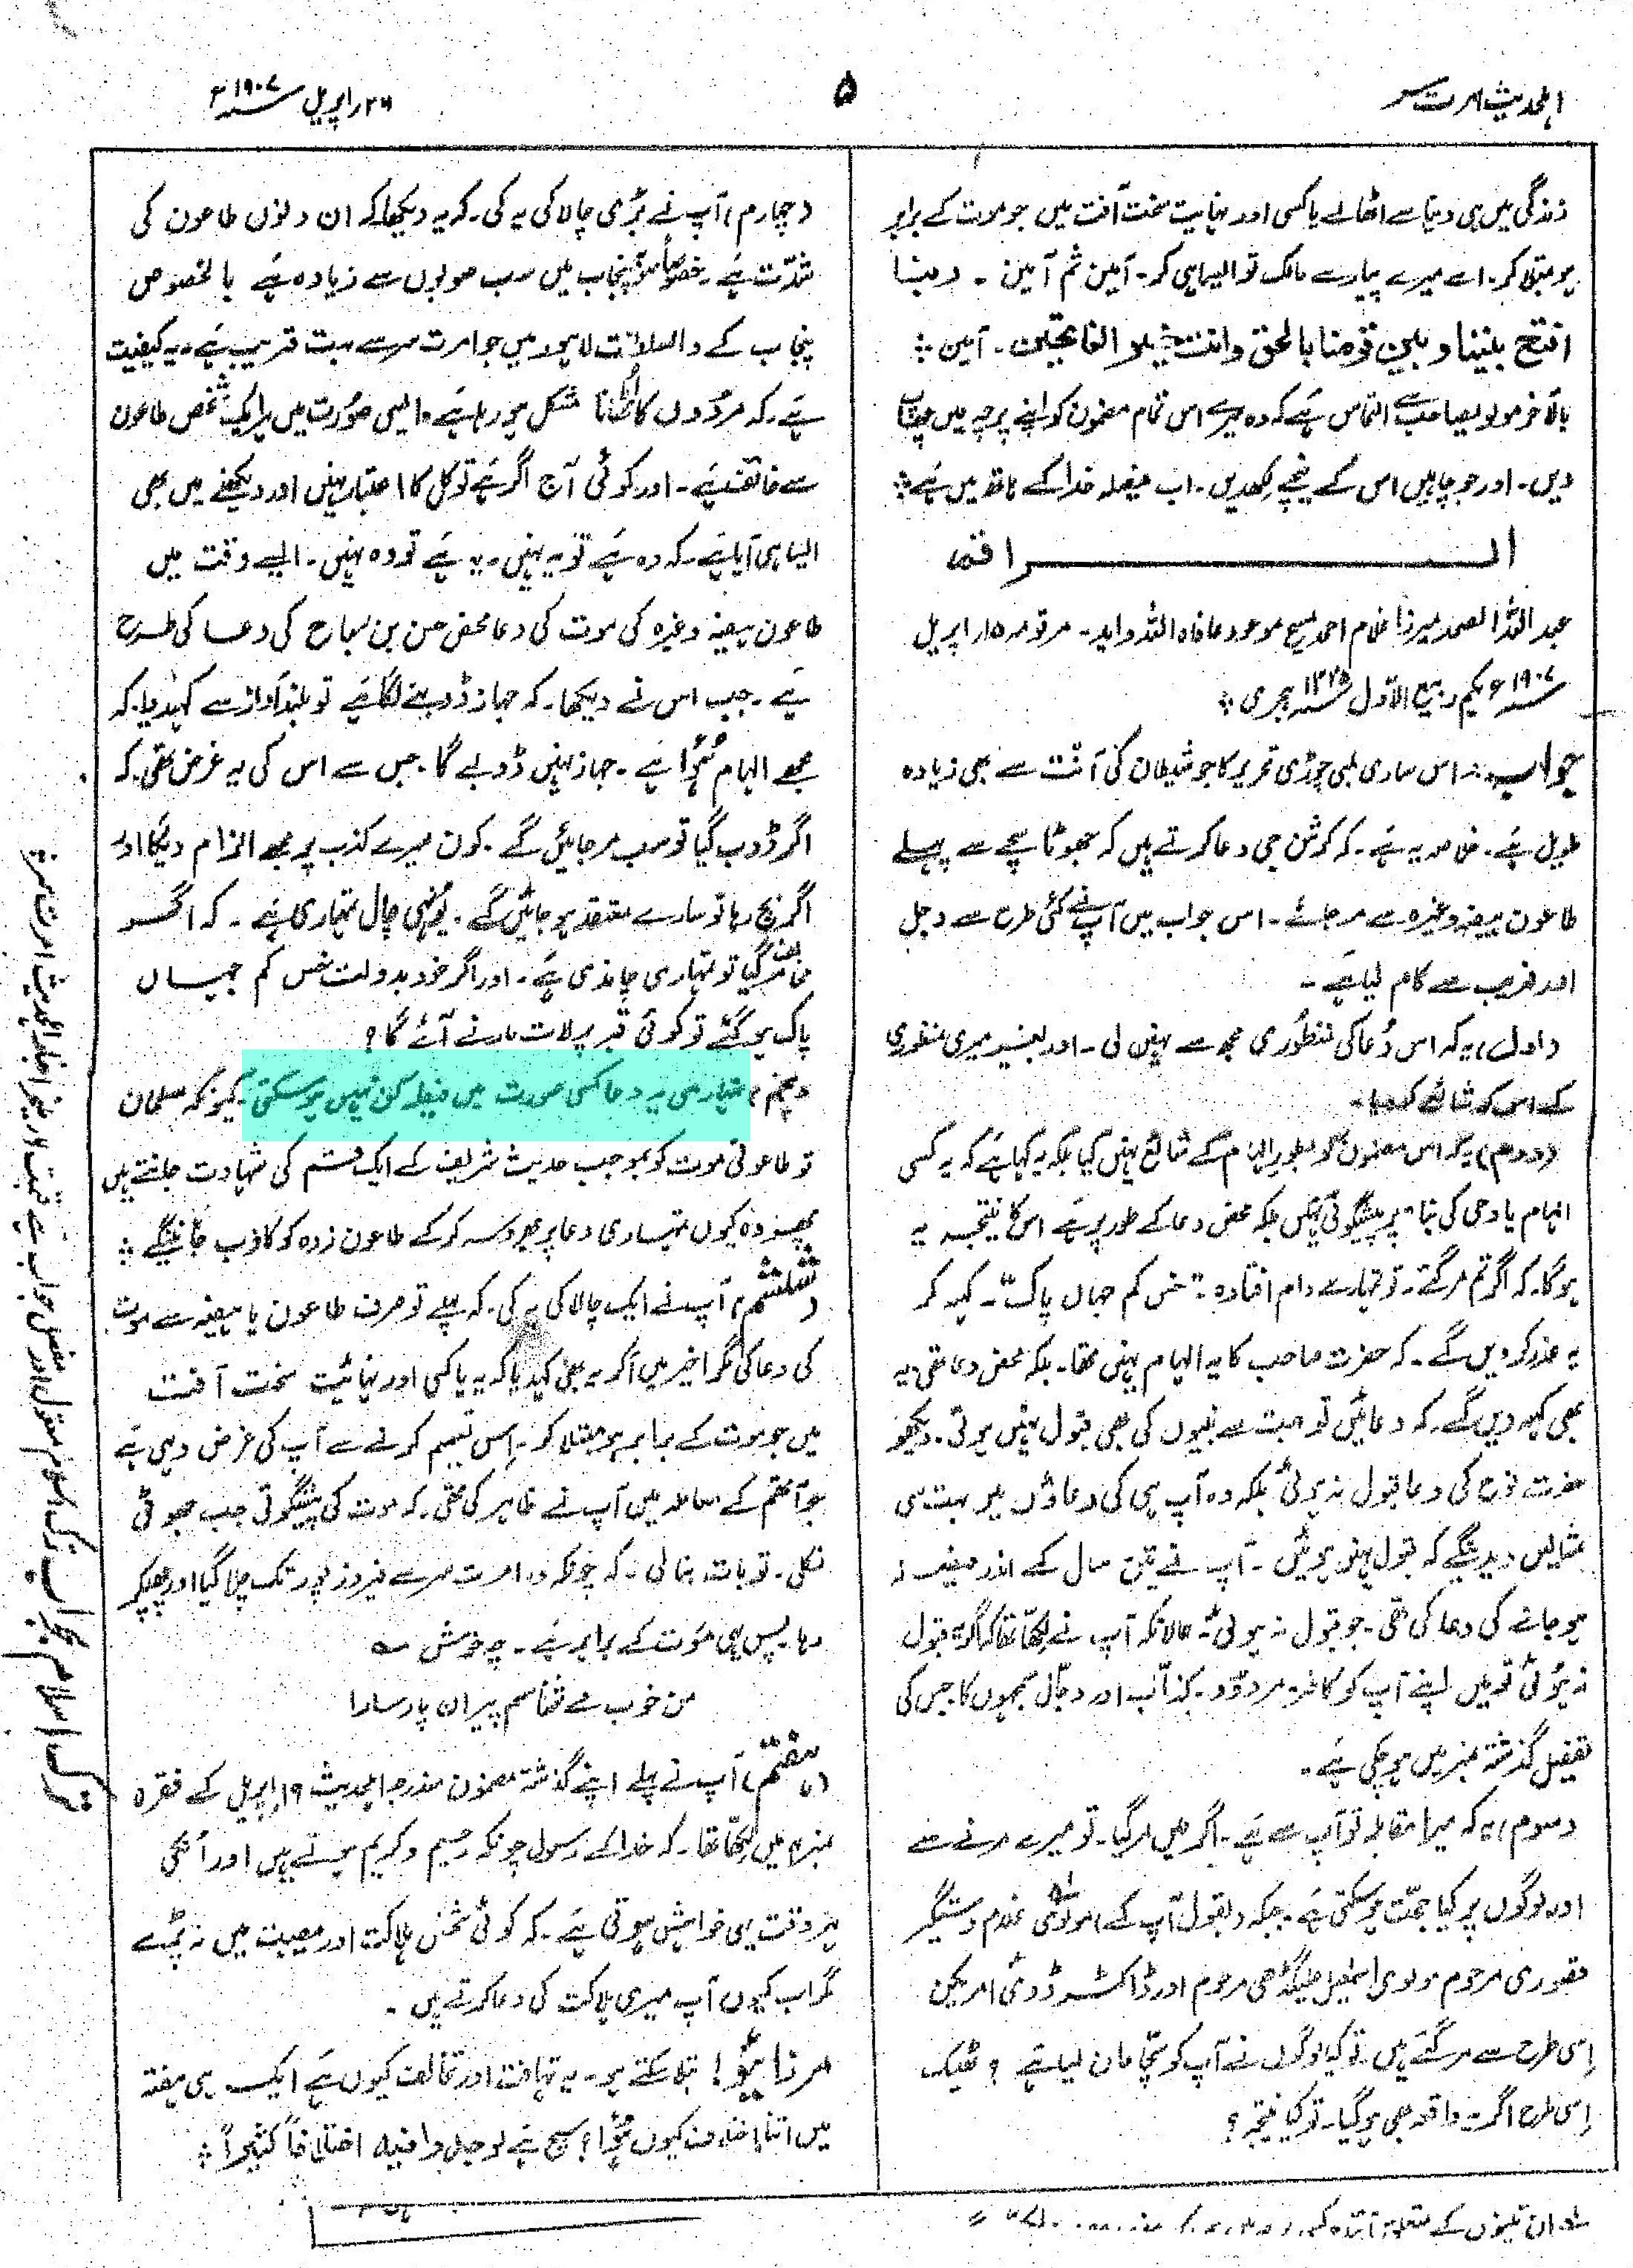 اہلحدیث امرتسر
۵
۲۶ اپریل سنہ ۱۹۰۷ء
زندگی میں ہی دنیا سے اٹھالے یا کسی اور نہایت سخت آفت میں جو موت کے برابر
ہو مبتلا کر۔ اے میرے پیارے مالک تو ایسا ہی کر۔ آمین ثم آمین ۔ ربنا
افتح بیننا و بین قومنا بالحق وانت خیر الفاتحین۔ آمین
بالآخر مولویصاحب سے التماس ہے کہ وہ میرے اس تمام مضمون کو اپنے پرچہ میں چھاپ
دیں۔ اور جو چاہیں اس کے نیچے لکھدیں۔ اب فیصلہ خدا کے ہاتھ میں ہے
الراقم
عبد اللہ الصمد میرزا غلام احمد مسیح موعود عافاہ اللہ واید۔ مرقومہ ۱۵ اپریل
سنہ ۱۹۰۷ء یکم ربیع الاول سنہ ۱۳۲۵ ہجری
جواب: اس ساری لمبی چوڑی تحریر کا جو شیطان کی آنت سے بھی زیادہ
طویل ہے۔ خلاصہ یہ ہے۔ کہ کرشن جی دعا کرتے ہیں کہ جھوٹا سچے سے پہلے
طاعون ہیضہ وغیرہ سے مر جائے۔ اس جواب میں آپ نے کئی طرح سے دجل
اور فریب سے کام لیا ہے۔
(اول) یہ کہ اس دُعا کی منظوری مجھ سے نہیں لی۔ اور بغیر میری منظوری
کے اس کو شائع کر دیا۔
(دوم) یہ کہ اس مضمون کو بطور الہام کے شائع نہیں کیا بلکہ یہ کہا ہے کہ یہ کسی
الہام یا وحی کی بناء پر پیشگوئی نہیں بلکہ محض دعا کے طور پر ہے اس کا نتیجہ یہ
ہوگا۔ کہ اگر تم مر گئے۔ تو تمہارے دام افتادہ خس کم جہاں پاک کہہ کر
یہ عذر کر دیں گے۔ کہ حضرت صاحب کا یہ الہام نہیں تھا۔ بلکہ محض دعا تھی۔ یہ
بھی کہہ دیں گے۔ کہ دعائیں تو بہت سے نبیوں کی بھی قبول نہیں ہوئی۔ دیکھو
حضرت نوح کی دعا قبول نہ ہوئی بلکہ وہ آپ ہی کی دعاؤں میں بہت سی
مثالیں دیدینگے کہ قبول نہیں ہوئیں۔ آپ نے تین سال کے اندر فیصلہ
ہو جانے کی دعا کی تھی۔ جو قبول نہ ہوئی۔ حالانکہ آپ نے لکھا تھا کہ اگر یہ قبول
نہ ہوئی تو میں اپنے آپ کو کافر۔ مردود۔ کذاب اور دجال سمجھوں گا۔ جس کی
تفصیل گذشتہ نمبر میں ہو چکی ہے۔
(سوم) یہ کہ میرا مقابلہ تو آپ سے ہے۔ اگر میں مر گیا۔ تو میرے مرنے سے
اور لوگوں پر کیا حجت ہو سکتی ہے۔ جبکہ (بقول آپ کے) مولوی غلام دستگیر
قصوری مرحوم مولوی اسمٰعیل علیگڑھی مرحوم اور ڈاکٹر ڈوئی امریکن
اِسی طرح سے مر گئے ہیں۔ تو کیا لوگوں نے آپ کو سچا مان لیا ہے؟ ٹھیک
اِسی طرح اگر یہ واقعہ بھی ہو گیا۔ تو کیا نتیجہ؟
ان تینوں کے متعلق
(چہارم) آپ نے بڑی چالاکی یہ کی۔ کہ یہ دیکھا کہ ان دنوں طاعون کی
شدت ہے۔ خصوصاً صوبہ پنجاب میں سب صوبوں سے زیادہ ہے بالخصوص
پنجاب کے دارالسلطنت لاہور میں جو امرتسر سے بہت قریب ہے۔ یہ کیفیت
ہے۔ کہ مردوں کا اُٹھانا مشکل ہو رہا ہے۔ ایسی صورت میں ہر ایک شخص طاعون
سے خائف ہے۔ اور کوئی آج اگر ہے تو کل کا اعتبار نہیں اور دیکھنے میں بھی
ایسا ہی آیا ہے۔ کہ وہ ہے تو یہ نہیں۔ یہ ہے تو وہ نہیں۔ ایسے وقت میں
طاعون ہیضہ وغیرہ کی موت کی دعا محض حسن بن صباح کی دعا کی طرح
ہے۔ جب اس نے دیکھا۔ کہ جہاز ڈوبنے لگا ہے تو بلند آواز سے کہدیا۔ کہ
مجھے الہام ہُوا ہے۔ جہاز نہیں ڈوبے گا۔ جس سے اس کی یہ غرض تھی۔ کہ
اگر ڈوب گیا تو سب مر جائیں گے۔ کون میرے کذب پر مجھے الزام دیگا اور
اگر بچ رہا تو سارے معتقد ہو جائیں گے۔ یونہی چال تمہاری ہے۔ کہ اگر
مخالف مر گیا تو تمہاری چاندی ہے۔ اور اگر خود بدولت خس کم جہاں
پاک ہو گئے تو کوئی قبر پر لات مارنے آئے گا؟
(پنجم) تمہاری یہ دعا کسی صورت میں فیصلہ کن نہیں ہو سکتی۔ کیونکہ مسلمان
تو طاعونی موت کو بموجب حدیث شریف کے ایک قسم کی شہادت جانتے ہیں
پھر وہ کیوں تمہاری دعا پر بھروسہ کر کے طاعون زدہ کو کاذب جانینگے
(ششم) آپ نے ایک چالاکی یہ کی۔ کہ پہلے تو صرف طاعون یا ہیضہ سے موت
کی دعا کی مگر اخیر میں آکر یہ بھی کہدیا کہ یہ یا کسی اور نہائیت سخت آفت
میں جو موت کے برابر ہو مبتلا کر۔ اِس تعمیم کرنے سے آپ کی غرض وہی ہے
جو آتھم کے معاملہ میں آپ نے ظاہر کی تھی۔ کہ موت کی پیشگوئی جب جھوٹی
نکلی۔ تو بات بنا لی۔ کہ چونکہ وہ امرتسر سے فیروزپور تک چلا گیا اور چھپکر
رہا۔ پس یہی موت کے برابر ہے۔ چہ خوش
من خوب مے شناسم پیران پارسا را
(ہفتم) آپ نے پہلے اپنے گذشتہ مضمون مندرجہ اہلحدیث ۱۹ اپریل کے فقرہ
نمبر میں لکھا تھا۔ کہ خدا کے رسول چونکہ رحیم و کریم ہوتے ہیں اور اُنکی
ہر وقت یہی خواہش ہوتی ہے۔ کہ کوئی شخص ہلاکت اور مصیبت میں نہ پڑے
مگر اب کیوں آپ میری ہلاکت کی دعا کرتے ہیں۔
مرزائیو! بتلا سکتے ہو۔ یہ تہافت اور تخالف کیوں ہے ایک ہی ہفتہ
میں اتنا اختلاف کیوں ہُوا؟ سچ ہے لوجدوا فیہ اختلافاً کثیراً
ترک اسلام بجواب ترک اسلام معقول اور مفصل جواب